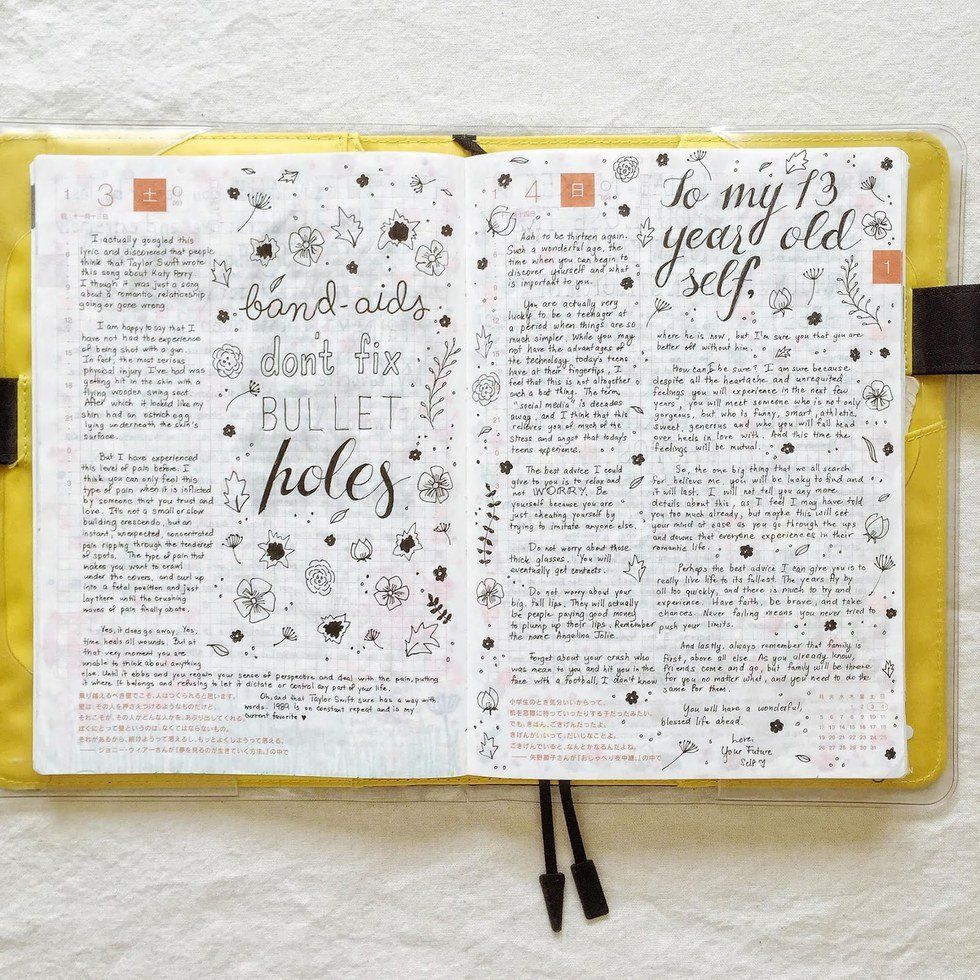 1 3 土
十一月十三日
I actually googled this
lyric and discovered that people
think that Taylor Swift wrote
this song about Katy Perry.
I though it was just a song
about a romantic relationship
going or gone wrong
I am happy to say that I
have not had the experience
of being shot with a gun.
In fact, the most serious
physical injury I've had was
getting hit in the skin with a
flying wooden swing seat.
After which it looked like my
shin had an ostrich egg
lying underneath the skin's
surface.
But I have experienced
this level of pain before. I
think you can only feel this
type of pain when it is inflicted
by someone that you trust and
love. It's not a small or slow
building crescendo, but an
instant, unexpected, concentrated
pain ripping through the tenderest
of spots. The type of pain that
makes you want to crawl
under the covers, and curl up
into a fetal position and just
lay there until the crushing
waves of pain finally abate.
Yes, it does go away. Yes,
time heals all wounds. But at
that very moment you are
unable to think about anything
else. Until it ebbs and you regain your sense of perspective and deal with the pain, putting
it where it belongs and refusing to let it dictate or control any part of your life.
Oh, and that Taylor Swift sure has a way with
words. 1989 is on constant repeat and is my
current favorite ♥
band-aids
don't fix
BULLET
holes
乗り越えるべき壁でこそ、人はつくられると思います。
壁は、その人を押さえつけるようなものだけど、
それこそが、その人がどんな人かを、あぶり出してくれる。
ぼくにとって壁というのは、なくてはならないもの。
それがあるから、続けようって思えるし、もっとよくしようって思える。
――ジョニー・ウィアーさんが『夢を見るのが生きていく方法。』の中で
1 4 日
To my 13
year old
self,
1
Aah, to be thirteen again.
Such a wonderful age, the
time when you can begin to
discover yourself and what
is important to you.
You are actually very
lucky to be a teenager at
a period when things are so
much simpler. While you may
not have the advantages of
the technology today's teens
have at their fingertips, I
feel that this is not altogether
such a bad thing. The term,
"social media" is decades
away, and I think that this
relieves you of much of the
stress and angst that today's
teens experience.
The best advice I could
give to you is to relax and
not WORRY. Be
yourself because you are
just cheating yourself by
trying to imitate anyone else.
Do not worry about those
thick glasses. You will
eventually get contacts.
Do not worry about your
big, full lips. They will actually
be people paying good money
to plump up their lips. Remember
the name Angelina Jolie.
Forget about your crush who
was mean to you and hit you in the
face with a football, I don't know
where he is now, but I'm sure you that you are
better off without him.
How can I be sure? I am sure because
despite all the heartache and unrequited
feelings you will experience in the next few
years, you will meet someone who is not only
gorgeous, but who is funny, smart, athletic,
sweet, generous and who you will fall head
over heels in love with. And this time the
feelings will be mutual.
So, the one big thing that we all search
for believe me, you will be lucky to find and
it will last. I will not tell you any more
details about this, as I feel I may have told
you too much already, but maybe this will set
your mind at ease as you go through the ups
and downs that everyone experiences in their
romantic life.
Perhaps the best advice I can give you is to
really live life to its fullest. The years fly by
all too quickly, and there is much to try and
experience. Have faith, be brave, and take
chances. Never failing means you never tried to
push your limits.
And lastly, always remember that family is
first, above all else. As you already know,
friends come and go, but family will be there
for you no matter what, and you need to do the
same for them.
You will have a wonderful,
blessed life ahead.
Love,
Your Future
Self ♡
小学生のとき気分いいからって、
机を窓際に持っていったりする子だったみたい。
でも、きほん、ごきげんだったよ。
きげんがいいって、だいじなことよ。
ごきげんでいると、なんとかなるんだよね。
――矢野顕子さんが『おしゃべりを中継。』の中で
月 火 水 木 金 土 日
1 2 3 4
5 6 7 8 9 10 11
12 13 14 15 16 17 18
19 20 21 22 23 24 25
26 27 28 29 30 31